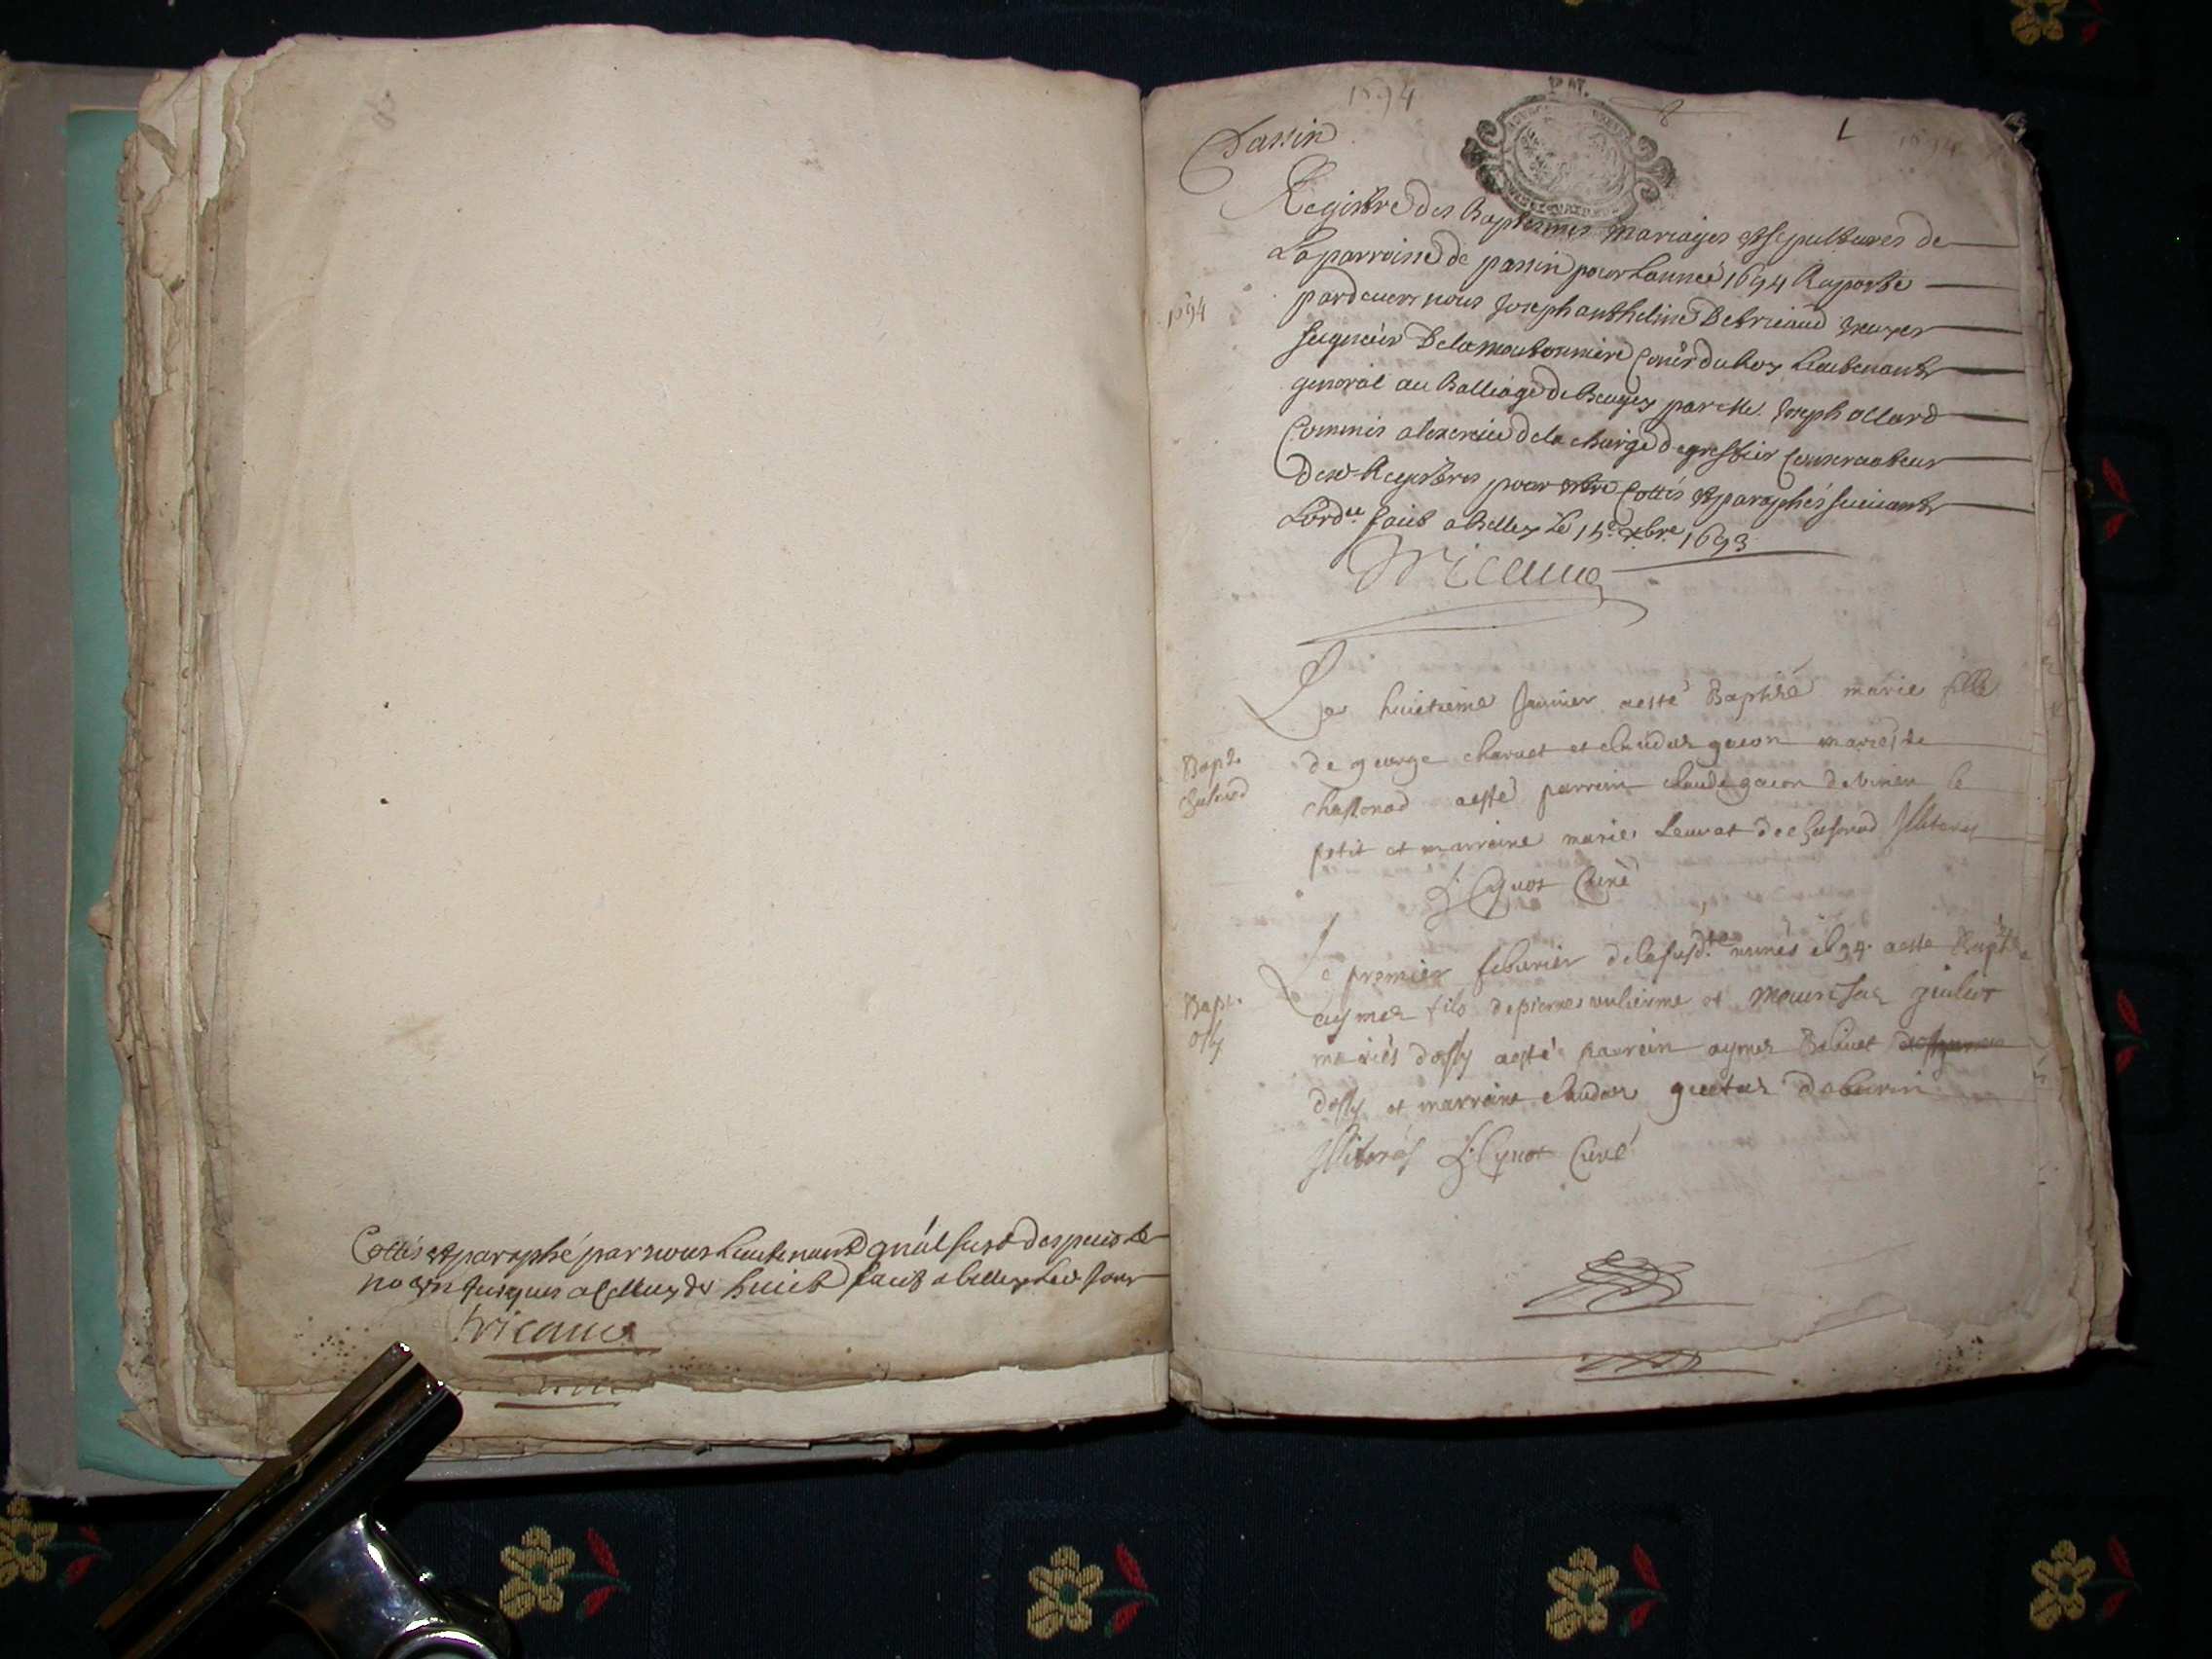 Cottés et paraphé par nous Lieutenant gnâl susd despuis le
no en jusques a celluy de huict faict a belley led jour
Tricaud
1694
Passin
1694
Registre des Baptesmes mariages et sepultures de
La parroisse de passin pour Lannée 1694 Raporté
pardevers nous Joseph anthelme De tricaud Escuyer
seigneur Delamoutonniere Coner du Roy Lieutenant
general au Balliage de Beugey par Me. Joseph allard
Commis a lexercice de la charge de greffier Conservateur
Desd Registres pour estre Cottés et paraphés suivant
Lordce faict a Belley le 15e xbre 1693
Tricaud
1694
Le huictieme Janvier a esté Baptizé marie fille
de george charvet et claudaz gacon mariés de
chassonod a esté parrain claude gacon de virieu le
petit et marraine marie Leuvat de chasonod Illiterés
Cynot Curé
Bapt.
Le premier febvrier de la susdte année 1694 a esté Bapt
aymez fils de pierre vulierme et
mariés dossy a esté parrain aymez
dossy et marraine claudaz
Illiterés Cynot Curé
Bapt.
ossy